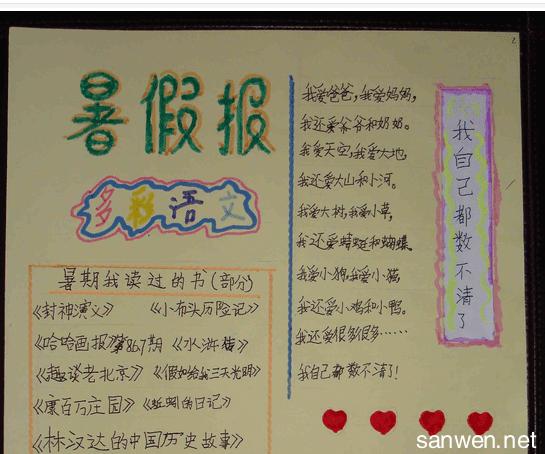 2
暑假报
多彩语文
暑期我读过的书(部分)
《封神演义》 《小布头历险记》
《哈哈画报》第867期 《水浒传》
《趣谈老北京》 《假如给我三天光明》
《康百万庄园》 《蚯蚓的日记》
《林汉达的中国历史故事》
我爱爸爸,我爱妈妈,
我还爱爷爷和奶奶。
我爱天空,我爱大地,
我还爱大山和小河。
我爱大树,我爱小草,
我还爱蜻蜓和蝴蝶。
我爱小狗,我爱小猫,
我还爱小鸡和小鸭。
我还爱很多很多……
我自己都数不清了!
我自己都数不清了
sanwen.net